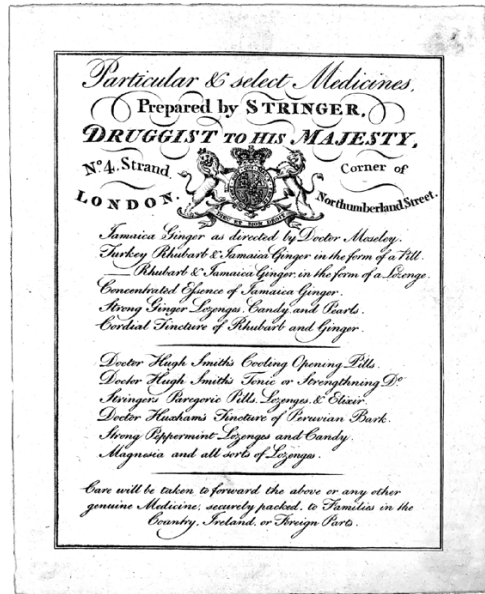 Particular & select Medicines,
Prepared by STRINGER,
DRUGGIST TO HIS MAJESTY,
No. 4, Strand, Corner of
LONDON. Northumberland Street.
DIEU ET MON DROIT
Jamaica Ginger as directed by Doctor Moseley.
Turkey Rhubarb & Jamaica Ginger in the form of a Pill.
Rhubarb & Jamaica Ginger, in the form of a Lozenge.
Concentrated Essence of Jamaica Ginger.
Strong Ginger Lozenges, Candy, and Pearls.
Cordial Tincture of Rhubarb and Ginger.
Doctor Hugh Smith's Cooling Opening Pills.
Doctor Hugh Smith's Tonic or Strengthning Do.
Stringers Paregoric Pills, Lozenges, & Elixir.
Doctor Huxham's Tincture of Peruvian Bark.
Strong Peppermint Lozenges and Candy.
Magnesia and all sorts of Lozenges.
Care will be taken to forward the above or any other
genuine Medicine; securely packed, to Families in the
Country, Ireland, or Foreign Parts.